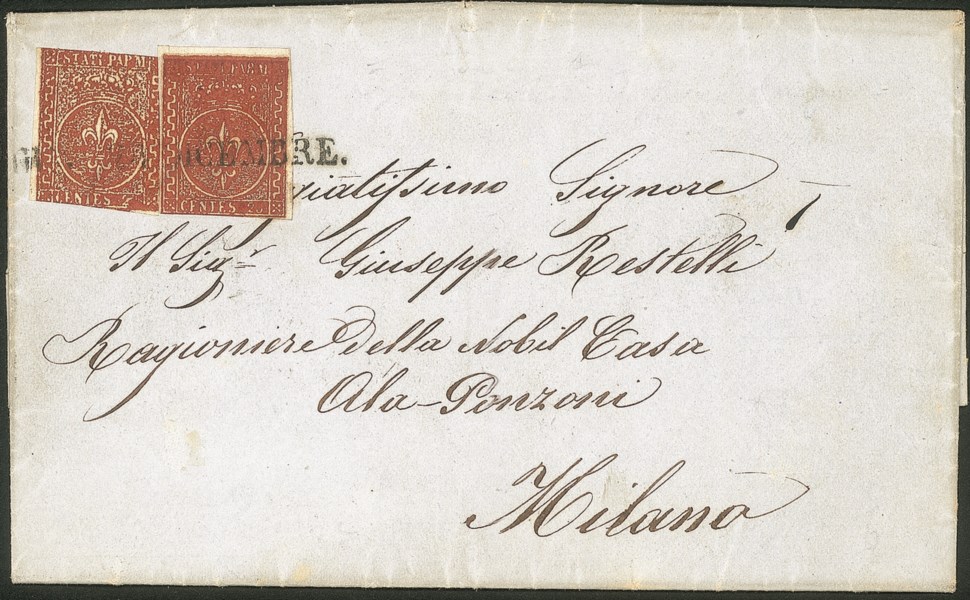 STATI PARM STATI PARM
DICEMBRE.
CENTES CENTES 25
giatissimo Signore
Il Sigr Giuseppe Restelli
Ragioniere della Nobil Casa
Ala-Ponzoni
Milano